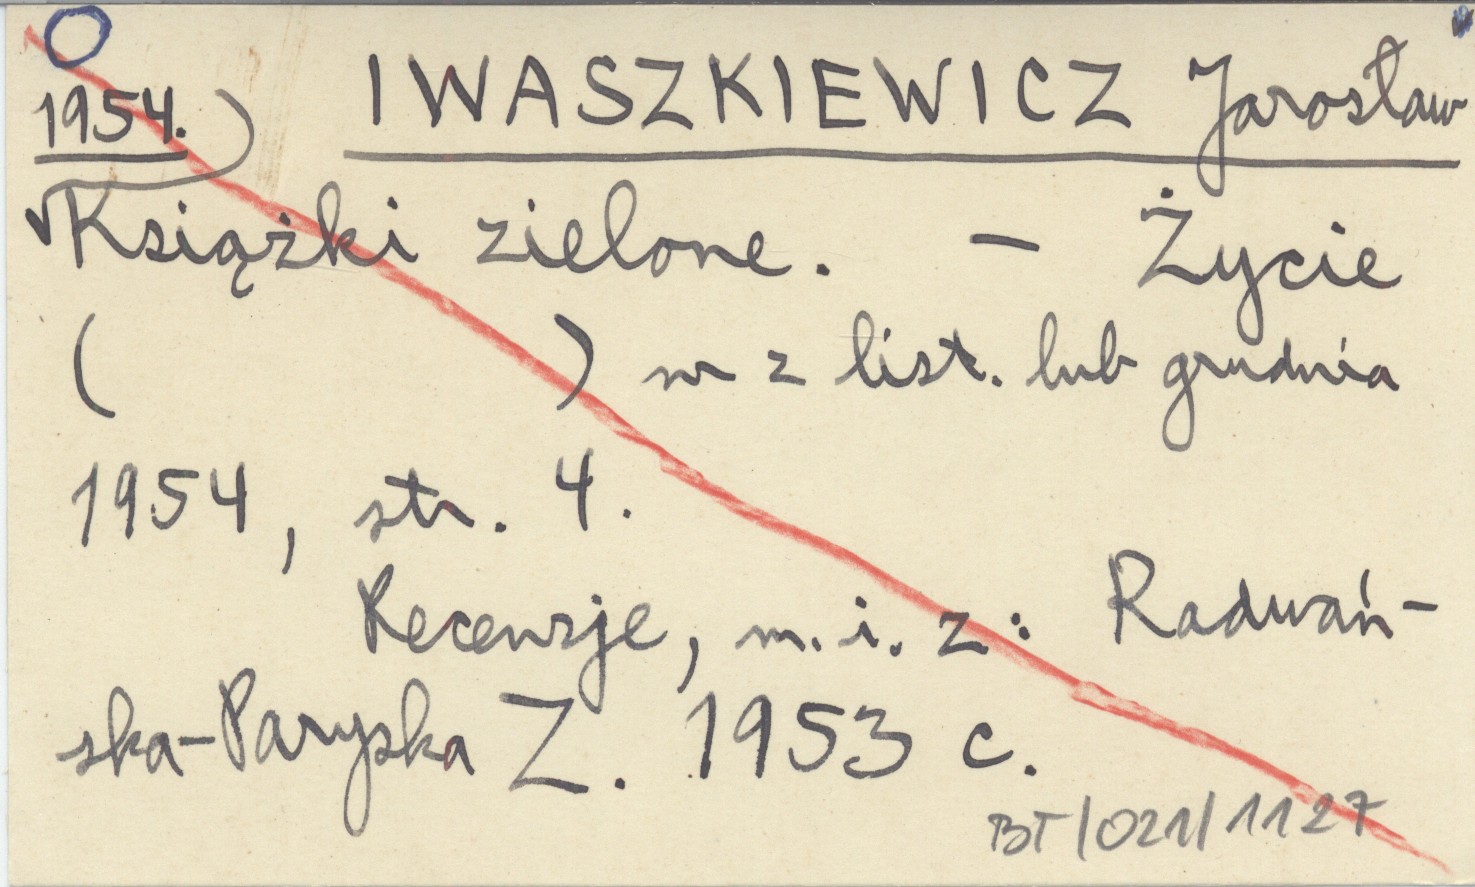 IWASZKIEWICZ Jarosław
1954.)
Książki zielone. – Życie
( ) nr z list. lub grudnia
1954, str. 4.
Recenzje, m.i. z: Radwań-
ska-Paryska Z. 1953 c.
BT/021/1127